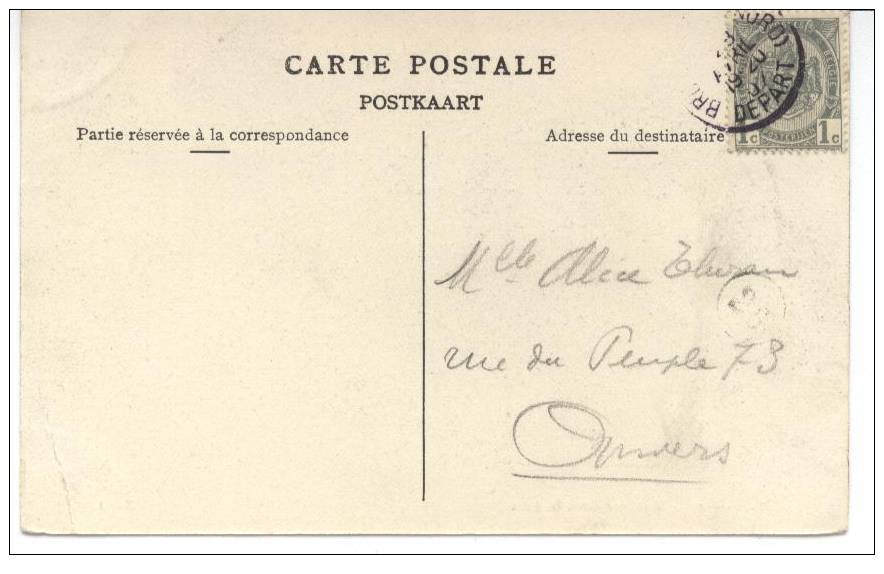 CARTE POSTALE
POSTKAART
Partie réservée à la correspondance
Adresse du destinataire
(NORD)
DEPART
1c 1c
Mlle Alice
rue du Peuple 73
Anvers